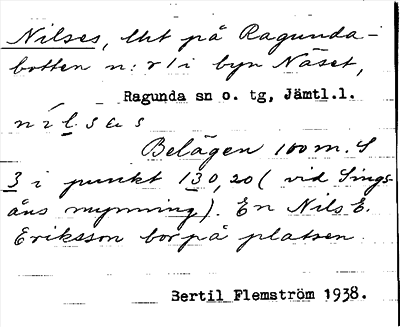 Nilses, lht på Ragunda-
botten n:r 1 i byn Näset,
Ragunda sn o. tg, Jämtl.l.
Belägen 100 m. S
3 i punkt 130,20 ( vid Sings-
åns mynning). En Nils E.
Eriksson bor på platsen.
Bertil Flemström 1938.